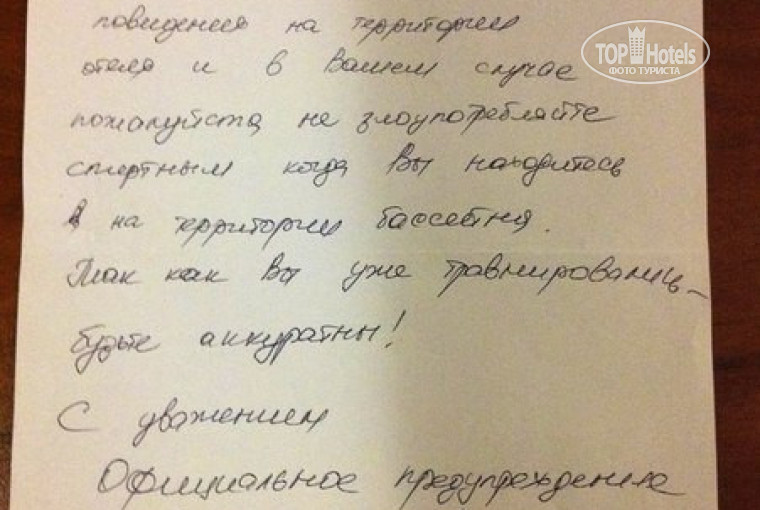 поведения на территории
отеля и в Вашем случае
пожалуйста, не злоупотребляйте
спиртным когда Вы находитесь
в на территории бассейна.
Так как Вы уже травмировались –
будьте аккуратны!
С уважением
Официальное предупреждение
TOP Hotels
ФОТО ТУРИСТА